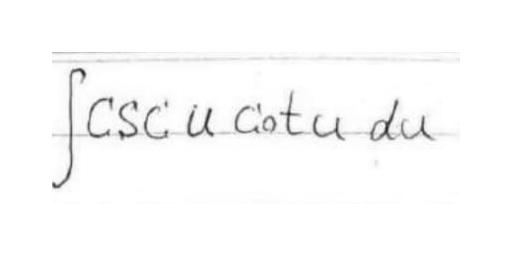 ∫ csc u cot u du